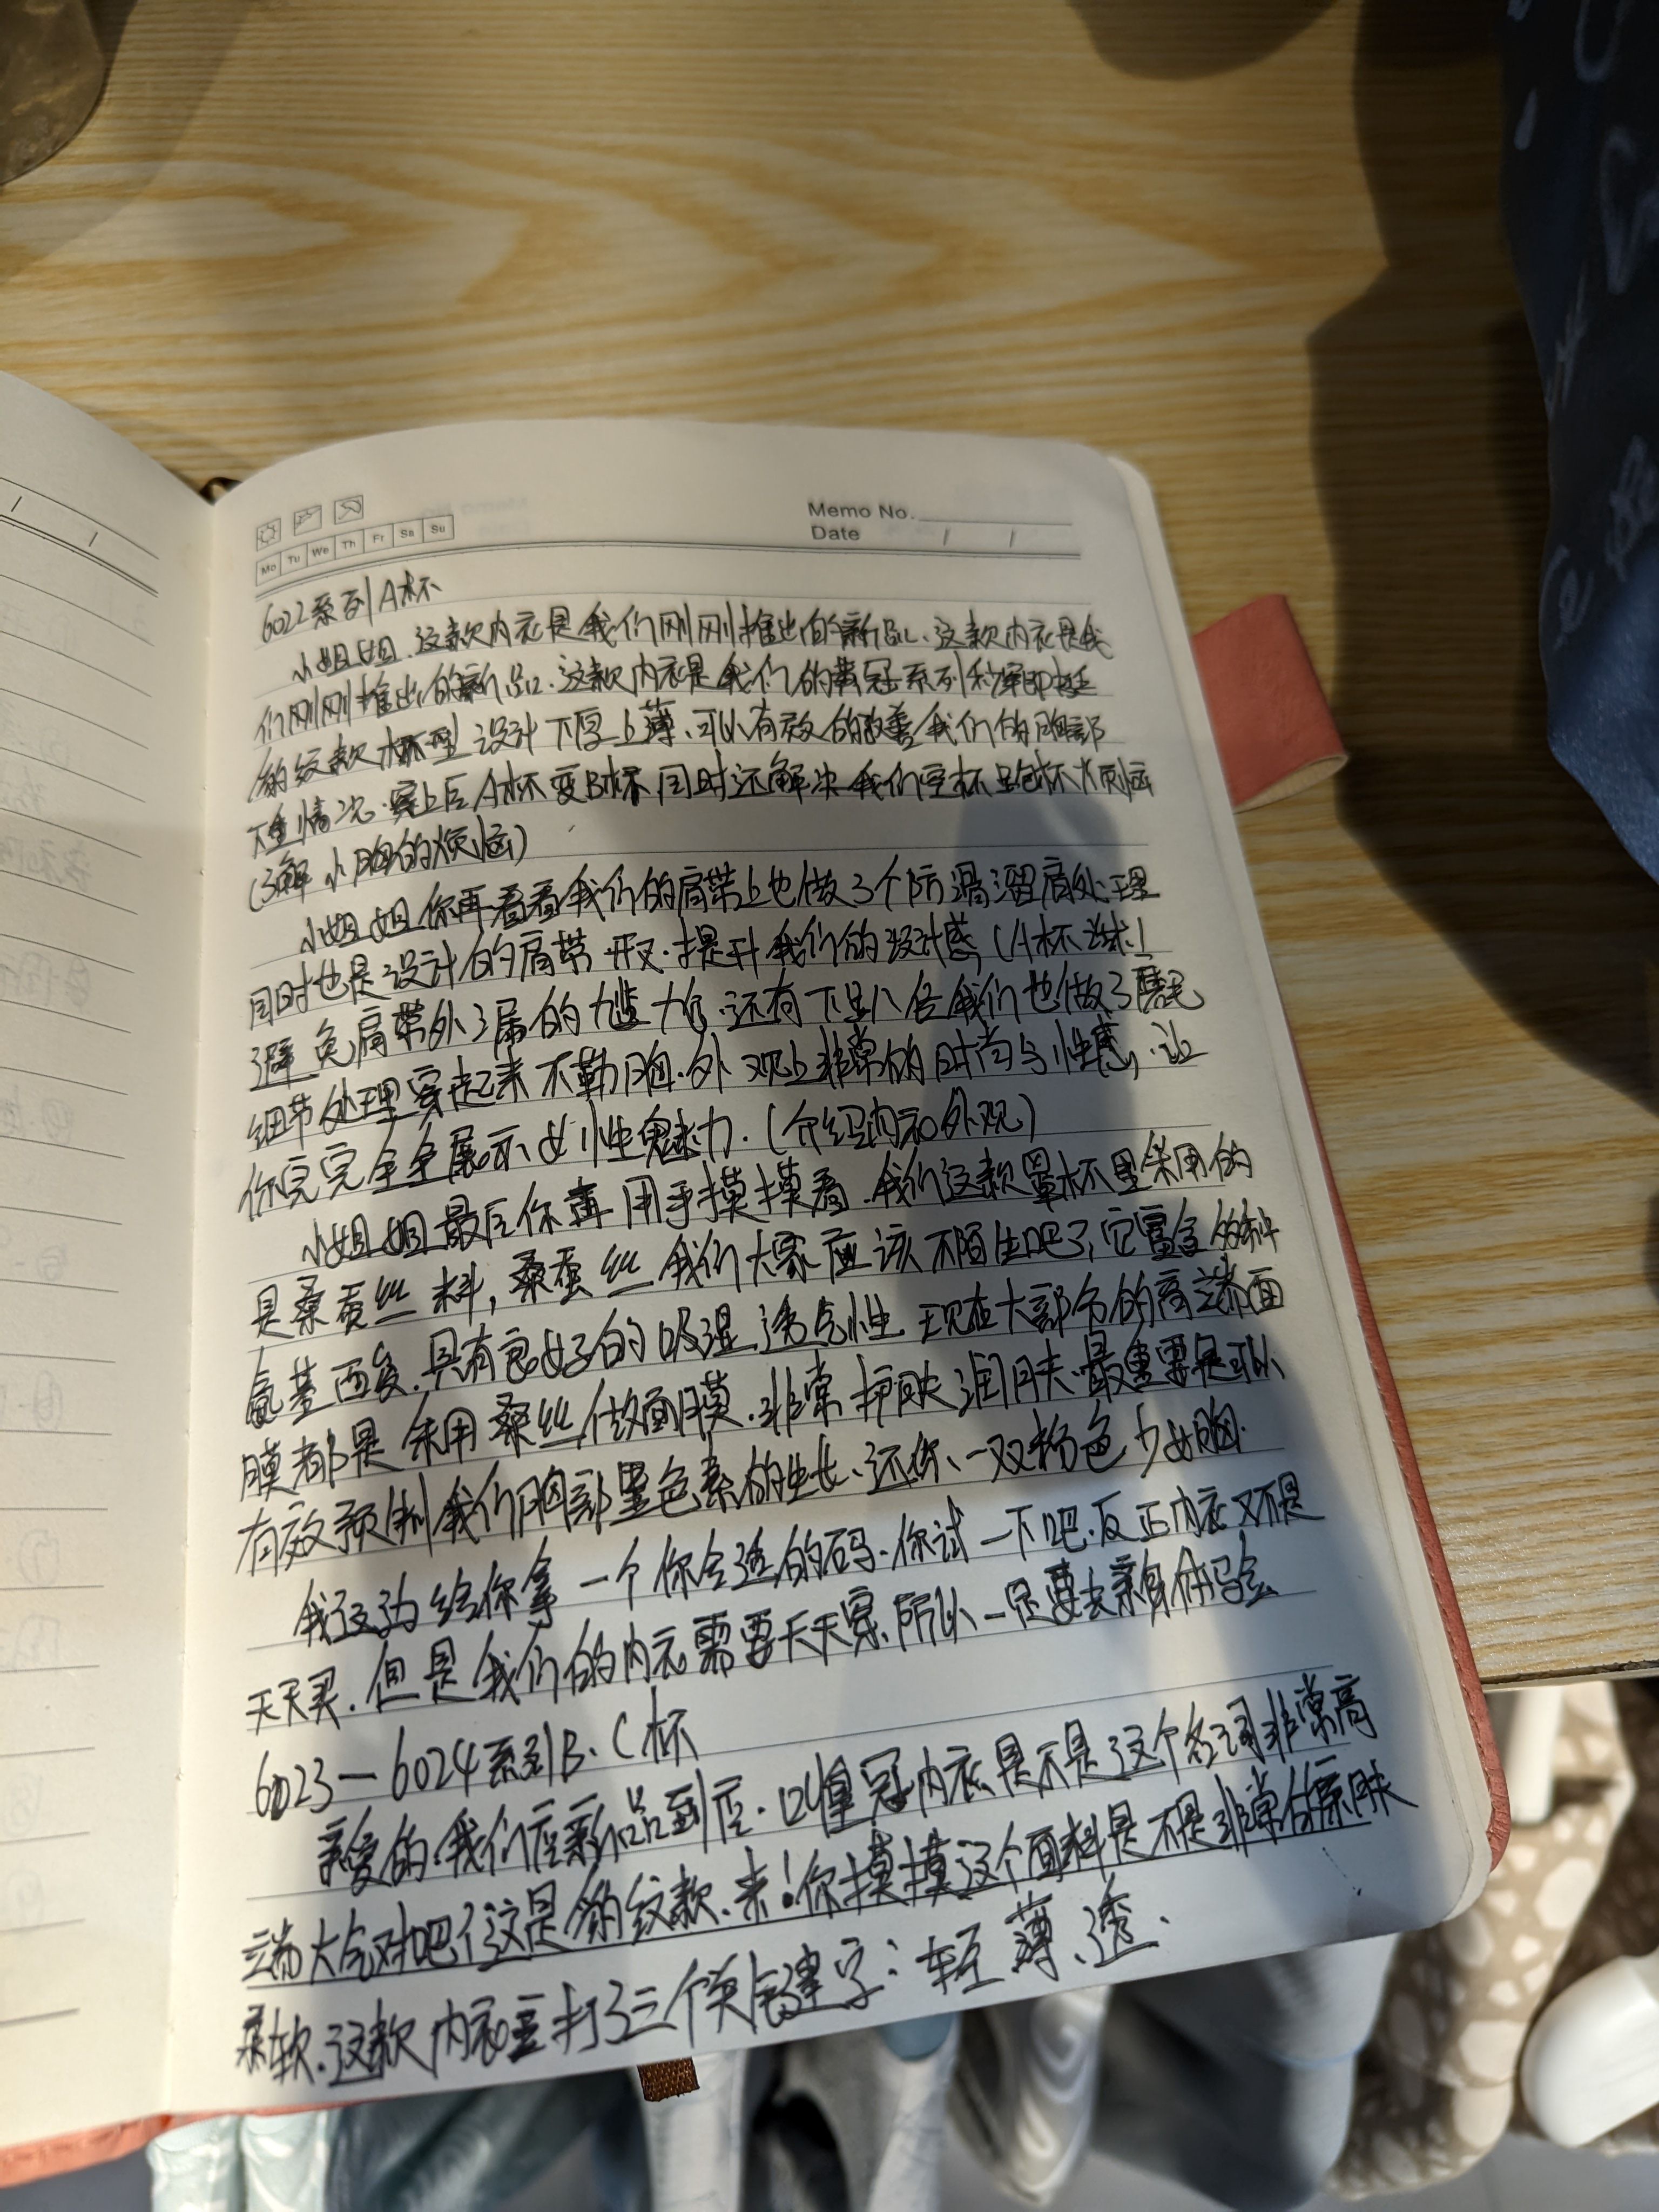 Memo No.
Date / /
Mo Tu We Th Fr Sa Su
6022系列A杯
小姐姐.这款内衣是我们刚刚推出的新品、这款内衣是我
们刚刚推出的新品.这款内衣是我们的黄冠系列
的纹款 杯型设计下厚上薄、可以有效的改善我们的胸部
下垂情况.穿上后A杯变B杯同时还解决我们空杯 杯大烦恼
(了解小胸的烦恼)
小姐姐你再看看我们的肩带上也做了个防滑溜肩处理
同时也是设计的肩带开叉.提升我们的设计感(A杯
避免肩带外漏的尴尬.还有下 我们也做了
细节处理穿起来不勒胸.外观上非常的时尚与性感,让
你完完全全展示女性魅力.(介绍内衣外观)
小姐姐最后你再用手摸摸看.我们这款罩杯里采用的
是桑蚕丝料,桑蚕丝我们大家应该不陌生吧,它富含18种
氨基酉酸.具有良好的吸湿透气性 现在大部分的高端面
膜都是采用桑丝做面膜.非常护肤润肤.最重要是可以
有效预制我们胸部黑色素的生长、还你、一双粉色少女胸.
我这边给你拿一个你合适的码.你试一下吧.反正内衣又不是
天天买.但是我们的内衣需要天天穿.所以一定要去亲身体验
6023—6024系列B.C杯
亲爱的.我们店新品到店. 皇冠内衣是不是这个名词非常高
端大气对吧 这是 纹款.来!你摸摸这个面料是不是非常的亲肤
柔软.这款内衣主打了三个关键字:轻、薄、透.